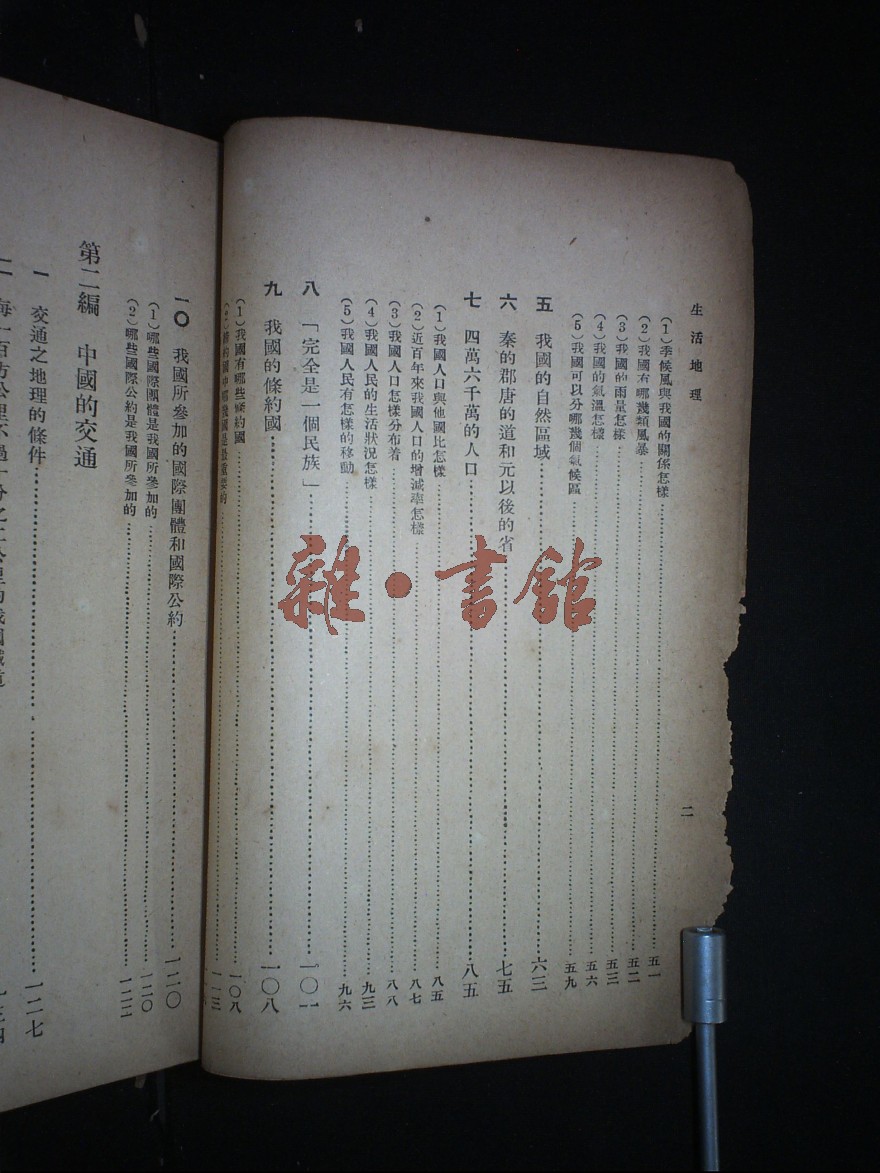 生活地理
二
(1)季候風與我國的關係怎樣……五一
(2)我國有哪幾類風暴……五二
(3)我國的雨量怎樣……五三
(4)我國的氣溫怎樣……五六
(5)我國可以分哪幾個氣候區……五九
五 我國的自然區域……六三
六 秦的郡唐的道和元以後的省……七五
七 四萬六千萬的人口……八五
(1)我國人口與他國比怎樣……八五
(2)近百年來我國人口的增減率怎樣……八七
(3)我國人口怎樣分布着……八八
(4)我國人民的生活狀況怎樣……九三
(5)我國人民有怎樣的移動……九六
八 「完全是一個民族」……一〇一
九 我國的條約國……一〇八
(1)我國有哪些條約國……一〇八
(2)……一一三
一〇 我國所參加的國際團體和國際公約……一二〇
(1)哪些國際團體是我國所參加的……一二〇
(2)哪些國際公約是我國所參加的……一二二
第二編 中國的交通
一 交通之地理的條件……一二七
雜·書館